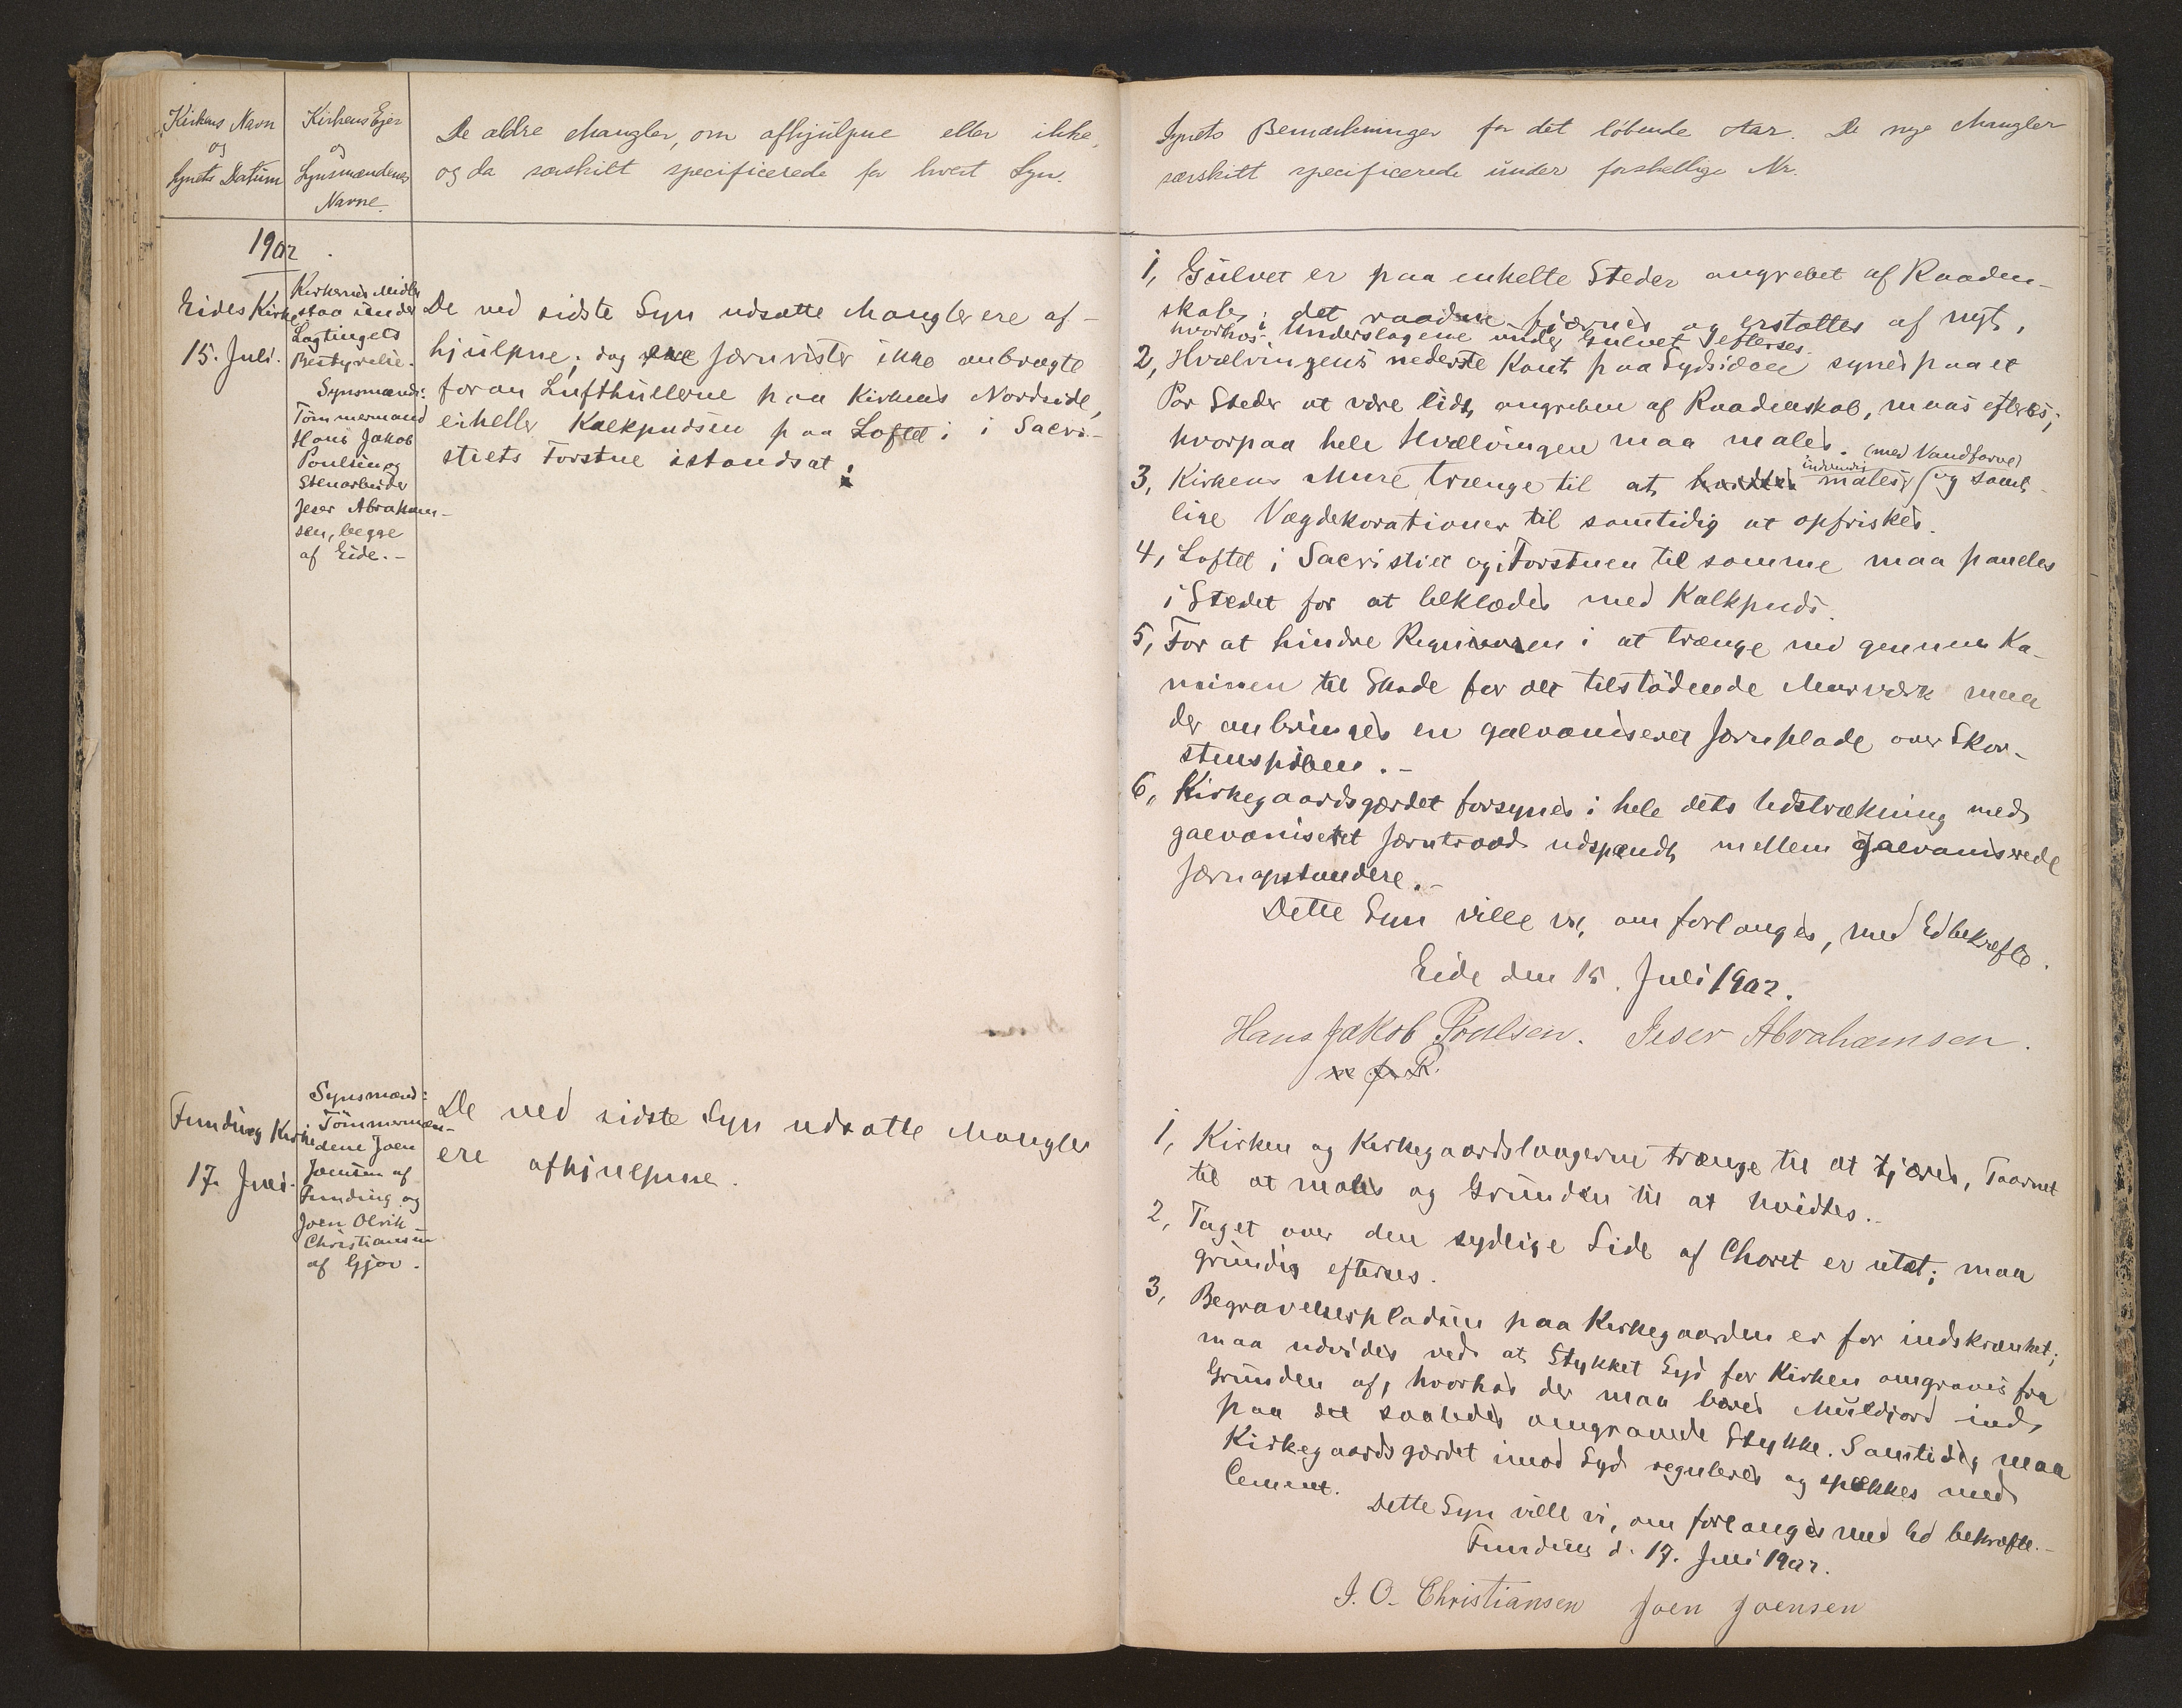 Kirkens Navn
og
Synets Datum
Kirkens Ejer
og
Synsmændenes
Navne.
De ældre Mangler, om afhjulpne eller ikke,
og da særskilt specificerede for hvert Syn.
1902.
Eides Kirke
15. Juli.
Kirkernes Midler
staa under
Lagtingets
Bestyrelse.
Synsmænd:
Tömmermand
Hans Jakob
Poulsen og
Stenarbeider
Jeser Abraham-
sen, begge
af Eide.-
De ved sidste Syn udsatte Mangler ere af-
hjulpne; dog ere Jærnrister ikke anbragte
foran Lufthullerne paa Kirkens Nordside,
eiheller Kalkpudsen paa Loftet i i Sacri-
stiets Forstue istandsat.
Funding Kirke
17. Juli.
Synsmænd:
Tömmermæn-
dene Joen
Joensen af
Funding og
Joen Olrik
Christiansen
af Gjov.
De ved sidste Syn udsatte Mangler
ere afhjulpne.
Synets Bemærkninger for det löbende Aar. De nye Mangler
særskilt specificerede under forskellige Nr.
1, Gulvet er paa enkelte Steder angrebet af Raaden-
skab; det raadne fjærnes og erstattes af nyt,
hvorhos Underslagene under Gulvet efterses.
2, Hvælvingens nederste Kant paa Sydsiden synes paa et
Par Steder at være lidt angreben af Raadenskab, maa efterses;
hvorpaa hele Hvælvingen maa males.
3, Kirkens Mure trænge til at hvidtes indvendig males (med Vandfarve) og samt-
lige Vægdekorationer til samtidig at opfriskes.
4, Loftet i Sacristiet og i Forstuen til samme maa paneles
i Stedet for at beklædes med Kalkpuds.
5, For at hindre Regnvandet i at trænge ned gennem Ka-
minen til Skade for det tilstödende Murværk maa
der anbringes en galvaniseret Jærnplade over Skor-
stenspiben.-
6, Kirkegaardsgærdet forsynes i hele dets Udstrækning med
galvaniseret Jærntraad udspændt mellem galvaniserede
Jærnopstandere.-
Dette Syn ville vi, om forlanges, med Ed bekræfte.
Eide den 15. Juli 1902.
Hans Jakob Poulsen. Jeser Abrahamsen.
m. f. P.
1, Kirken og Kirkegaardslaagerne trænge til at tjæres, Taarnet
til at males og Grunden til at hvidtes.-
2, Taget over den sydlige Side af Choret er utæt; maa
grundig efterses.
3, Begravelsespladsen paa Kirkegaarden er for indskrænket;
maa udvides ved at Stykket Syd for Kirken omgraves fra
Grunden af, hvorhos der maa bæres Muldjord ind
paa det saaledes omgravede Stykke. Samtidig maa
Kirkegaardsgærdet imod Syd reguleres og spækkes med
Cement.
Dette Syn ville vi, om forlanges med Ed bekræfte.-
Funding d. 17. Juli 1902.
J. O. Christiansen Joen Joensen